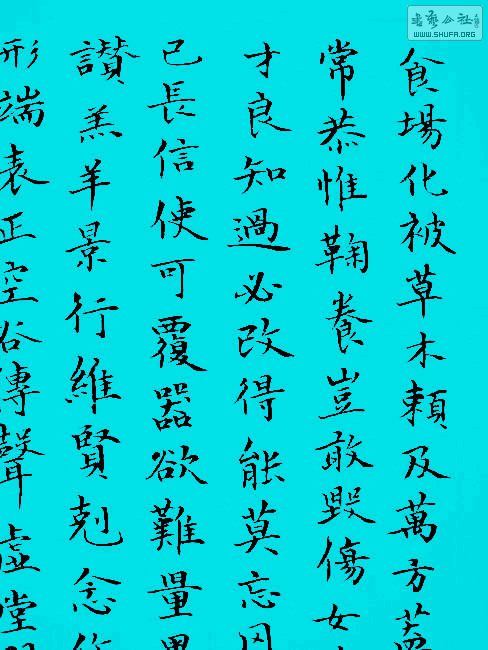 食場化被草木賴及萬方蓋
常恭惟鞠養豈敢毀傷女
才良知過必改得能莫忘罔
己長信使可覆器欲難量
讚羔羊景行維賢剋念作
形端表正空谷傳聲虛堂
書藝公社
WWW.SHUFA.ORG